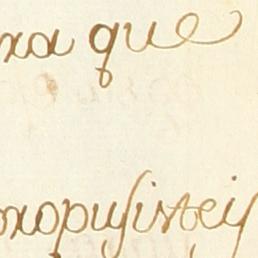 xa que
oxopusisteis